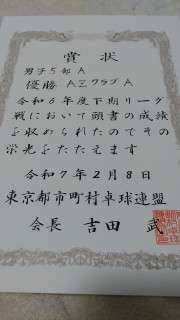 賞状
男子5部A
優勝 A三クラブA
令和6年度下期リーグ
戦において頭書の成績
を収められたのでその
栄光をたたえます
令和7年2月8日
東京都市町村卓球連盟
会長 吉田 武